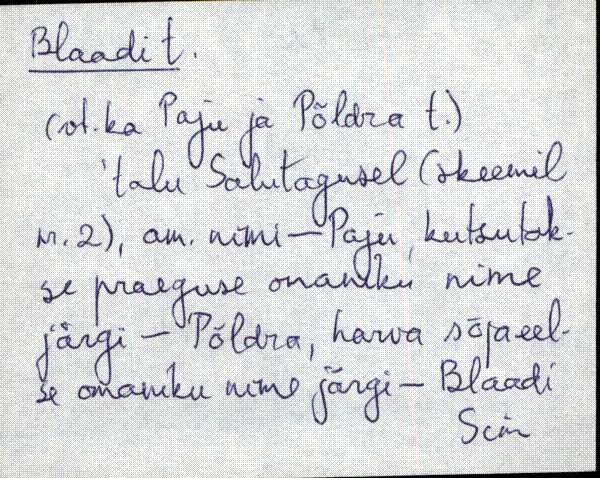 Blaadi t.
(vt. ka Paju ja Põldra t.)
'talu Salutagusel (skeemil
nr. 2), am. nimi – Paju, kutsutak-
se praeguse omaniku nime
järgi – Põldra, harva sõjaeel-
se omaniku nime järgi – Blaadi